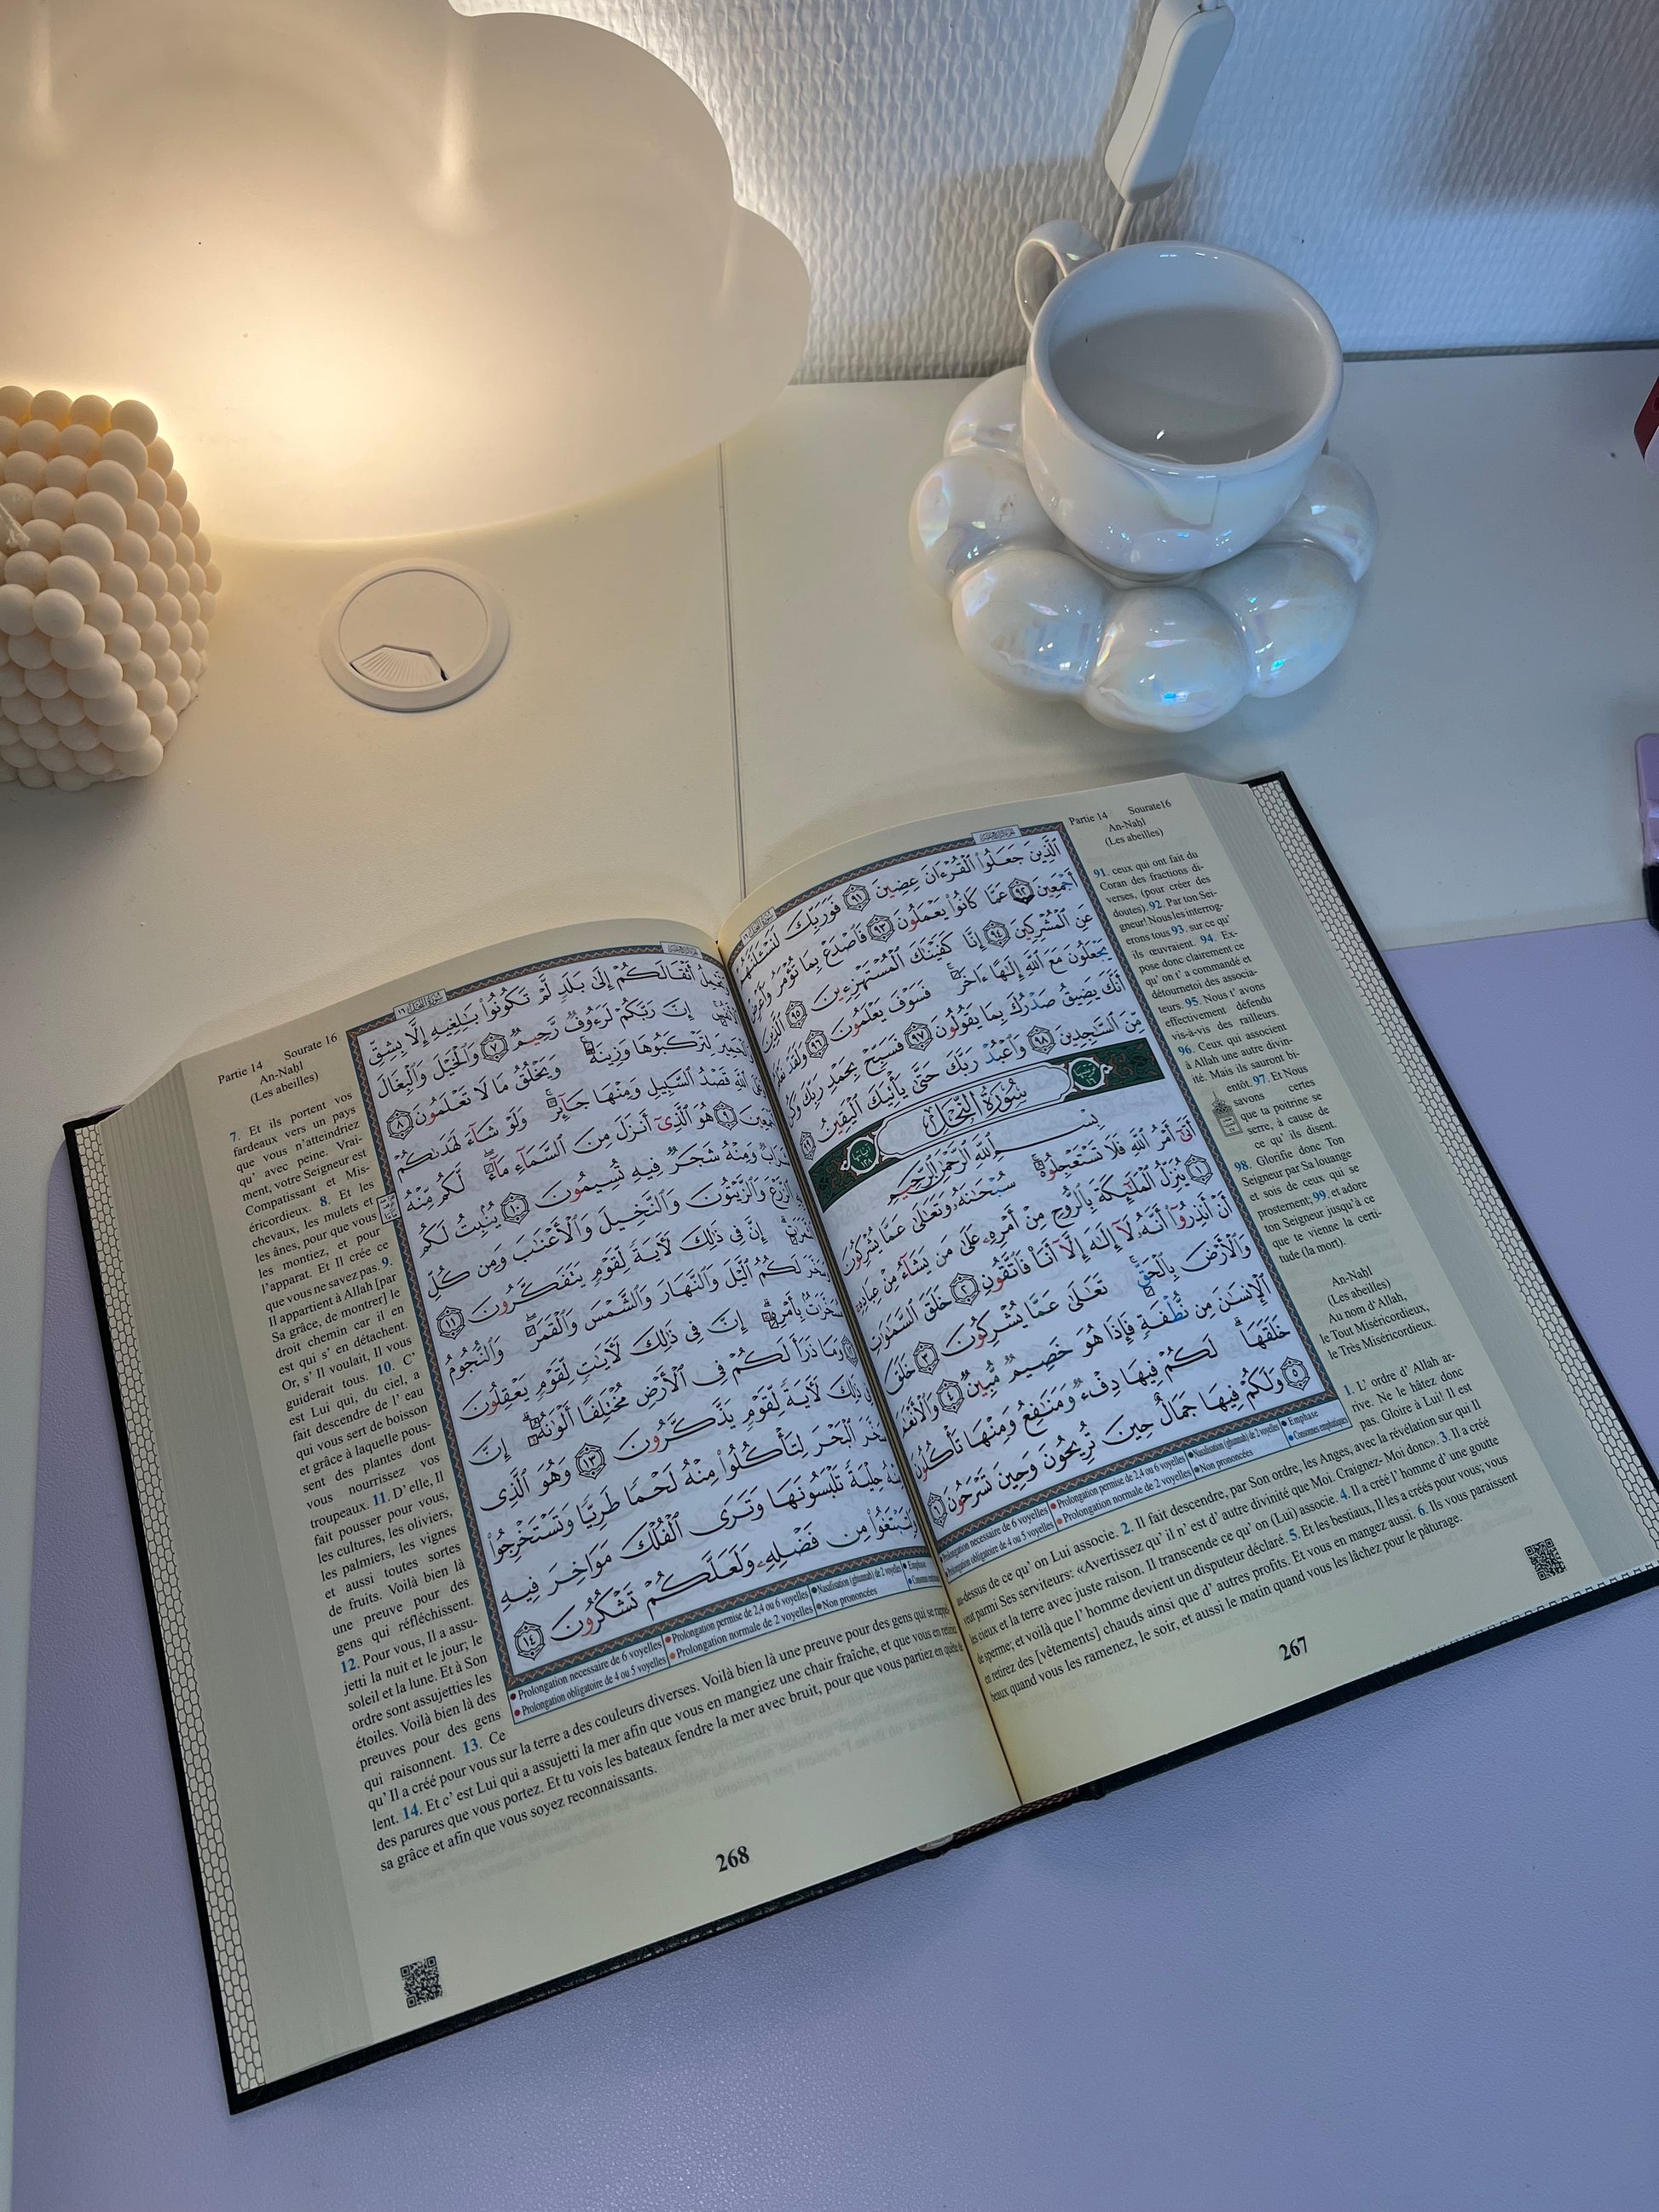 Partie 14 Sourate16
An-Naḥl
(Les abeilles)
ٱلَّذِينَ جَعَلُوا۟ ٱلْقُرْءَانَ عِضِينَ ٩١ فَوَرَبِّكَ لَنَسْـَٔلَنَّهُمْ
أَجْمَعِينَ ٩٢ عَمَّا كَانُوا۟ يَعْمَلُونَ ٩٣ فَٱصْدَعْ بِمَا تُؤْمَرُ وَأَعْرِضْ
عَنِ ٱلْمُشْرِكِينَ ٩٤ إِنَّا كَفَيْنَـٰكَ ٱلْمُسْتَهْزِءِينَ ٩٥ ٱلَّذِينَ
يَجْعَلُونَ مَعَ ٱللَّهِ إِلَـٰهًا ءَاخَرَ ۚ فَسَوْفَ يَعْلَمُونَ ٩٦ وَلَقَدْ نَعْلَمُ
أَنَّكَ يَضِيقُ صَدْرُكَ بِمَا يَقُولُونَ ٩٧ فَسَبِّحْ بِحَمْدِ رَبِّكَ وَكُن
مِّنَ ٱلسَّـٰجِدِينَ ٩٨ وَٱعْبُدْ رَبَّكَ حَتَّىٰ يَأْتِيَكَ ٱلْيَقِينُ ٩٩
سُورَةُ النَّحْلِ
بِسْمِ ٱللَّهِ ٱلرَّحْمَـٰنِ ٱلرَّحِيمِ
أَتَىٰٓ أَمْرُ ٱللَّهِ فَلَا تَسْتَعْجِلُوهُ ۚ سُبْحَـٰنَهُۥ وَتَعَـٰلَىٰ عَمَّا يُشْرِكُونَ
١ يُنَزِّلُ ٱلْمَلَـٰٓئِكَةَ بِٱلرُّوحِ مِنْ أَمْرِهِۦ عَلَىٰ مَن يَشَآءُ مِنْ عِبَادِهِۦٓ
أَنْ أَنذِرُوٓا۟ أَنَّهُۥ لَآ إِلَـٰهَ إِلَّآ أَنَا۠ فَٱتَّقُونِ ٢ خَلَقَ ٱلسَّمَـٰوَٰتِ
وَٱلْأَرْضَ بِٱلْحَقِّ ۚ تَعَـٰلَىٰ عَمَّا يُشْرِكُونَ ٣ خَلَقَ
ٱلْإِنسَـٰنَ مِن نُّطْفَةٍ فَإِذَا هُوَ خَصِيمٌ مُّبِينٌ ٤ وَٱلْأَنْعَـٰمَ
خَلَقَهَا ۗ لَكُمْ فِيهَا دِفْءٌ وَمَنَـٰفِعُ وَمِنْهَا تَأْكُلُونَ
٥ وَلَكُمْ فِيهَا جَمَالٌ حِينَ تُرِيحُونَ وَحِينَ تَسْرَحُونَ ٦
Prolongation nécessaire de 6 voyelles Prolongation permise de 2,4 ou 6 voyelles Nasalisation (ghunnah) de 2 voyelles Emphase
Prolongation obligatoire de 4 ou 5 voyelles Prolongation normale de 2 voyelles Non prononcées Consonnes emphatiques
91. ceux qui ont fait du
Coran des fractions di-
verses, (pour créer des
doutes). 92. Par ton Sei-
gneur! Nous les interrog-
erons tous 93. sur ce qu'
ils œuvraient. 94. Ex-
pose donc clairement ce
qu' on t' a commandé et
détournetoi des associa-
teurs. 95. Nous t' avons
effectivement défendu
vis-à-vis des railleurs.
96. Ceux qui associent
à Allah une autre divin-
ité. Mais ils sauront bi-
entôt. 97. Et Nous
savons certes
que ta poitrine se
serre, à cause de
ce qu' ils disent.
98. Glorifie donc Ton
Seigneur par Sa louange
et sois de ceux qui se
prosternent; 99. et adore
ton Seigneur jusqu'à ce
que te vienne la certi-
tude (la mort).
An-Naḥl
(Les abeilles)
Au nom d' Allah,
le Tout Miséricordieux,
le Très Miséricordieux.
1. L' ordre d' Allah ar-
rive. Ne le hâtez donc
pas. Gloire à Lui! Il est
au-dessus de ce qu' on Lui associe. 2. Il fait descendre, par Son ordre, les Anges, avec la révélation sur qui Il
veut parmi Ses serviteurs: «Avertissez qu' il n' est d' autre divinité que Moi. Craignez- Moi donc». 3. Il a créé
les cieux et la terre avec juste raison. Il transcende ce qu' on (Lui) associe. 4. Il a créé l' homme d' une goutte
de sperme; et voilà que l' homme devient un disputeur déclaré. 5. Et les bestiaux, Il les a créés pour vous; vous
en retirez des [vêtements] chauds ainsi que d' autres profits. Et vous en mangez aussi. 6. Ils vous paraissent
beaux quand vous les ramenez, le soir, et aussi le matin quand vous les lâchez pour le pâturage.
267
Partie 14 Sourate 16
An-Naḥl
(Les abeilles)
أَثْقَالَكُمْ إِلَىٰ بَلَدٍ لَّمْ تَكُونُوا۟ بَـٰلِغِيهِ إِلَّا بِشِقِّ
إِنَّ رَبَّكُمْ لَرَءُوفٌ رَّحِيمٌ ٧ وَٱلْخَيْلَ وَٱلْبِغَالَ
لِتَرْكَبُوهَا وَزِينَةً ۚ وَيَخْلُقُ مَا لَا تَعْلَمُونَ ٨
ٱللَّهِ قَصْدُ ٱلسَّبِيلِ وَمِنْهَا جَآئِرٌ ۚ وَلَوْ شَآءَ لَهَدَىٰكُمْ
٩ هُوَ ٱلَّذِىٓ أَنزَلَ مِنَ ٱلسَّمَآءِ مَآءً ۖ لَّكُم مِّنْهُ
وَمِنْهُ شَجَرٌ فِيهِ تُسِيمُونَ ١٠ يُنۢبِتُ لَكُم
ٱلزَّرْعَ وَٱلزَّيْتُونَ وَٱلنَّخِيلَ وَٱلْأَعْنَـٰبَ وَمِن كُلِّ
إِنَّ فِى ذَٰلِكَ لَـَٔايَةً لِّقَوْمٍ يَتَفَكَّرُونَ ١١
لَكُمُ ٱلَّيْلَ وَٱلنَّهَارَ وَٱلشَّمْسَ وَٱلْقَمَرَ ۖ وَٱلنُّجُومُ
بِأَمْرِهِۦٓ ۗ إِنَّ فِى ذَٰلِكَ لَـَٔايَـٰتٍ لِّقَوْمٍ يَعْقِلُونَ
وَمَا ذَرَأَ لَكُمْ فِى ٱلْأَرْضِ مُخْتَلِفًا أَلْوَٰنُهُۥٓ ۗ إِنَّ
ذَٰلِكَ لَـَٔايَةً لِّقَوْمٍ يَذَّكَّرُونَ ١٣ وَهُوَ ٱلَّذِى
ٱلْبَحْرَ لِتَأْكُلُوا۟ مِنْهُ لَحْمًا طَرِيًّا وَتَسْتَخْرِجُوا۟
حِلْيَةً تَلْبَسُونَهَا وَتَرَى ٱلْفُلْكَ مَوَاخِرَ فِيهِ
وَلِتَبْتَغُوا۟ مِن فَضْلِهِۦ وَلَعَلَّكُمْ تَشْكُرُونَ ١٤
Prolongation nécessaire de 6 voyelles Prolongation permise de 2,4 ou 6 voyelles Nasalisation (ghunnah) de 2 voyelles Emphase
Prolongation obligatoire de 4 ou 5 voyelles Prolongation normale de 2 voyelles Non prononcées
7. Et ils portent vos
fardeaux vers un pays
que vous n'atteindriez
qu' avec peine. Vrai-
ment, votre Seigneur est
Compatissant et Mis-
éricordieux. 8. Et les
chevaux, les mulets et
les ânes, pour que vous
les montiez, et pour
l'apparat. Et Il crée ce
que vous ne savez pas. 9.
Il appartient à Allah [par
Sa grâce, de montrer] le
droit chemin car il en
est qui s' en détachent.
Or, s' Il voulait, Il vous
guiderait tous. 10. C'
est Lui qui, du ciel, a
fait descendre de l' eau
qui vous sert de boisson
et grâce à laquelle pous-
sent des plantes dont
vous nourrissez vos
troupeaux. 11. D' elle, Il
fait pousser pour vous,
les cultures, les oliviers,
les palmiers, les vignes
et aussi toutes sortes
de fruits. Voilà bien là
une preuve pour des
gens qui réfléchissent.
12. Pour vous, Il a assu-
jetti la nuit et le jour; le
soleil et la lune. Et à Son
ordre sont assujetties les
étoiles. Voilà bien là des
preuves pour des gens
qui raisonnent. 13. Ce
qu' Il a créé pour vous sur la terre a des couleurs diverses. Voilà bien là une preuve pour des gens qui se rappel-
lent. 14. Et c' est Lui qui a assujetti la mer afin que vous en mangiez une chair fraîche, et que vous en retiriez
des parures que vous portez. Et tu vois les bateaux fendre la mer avec bruit, pour que vous partiez en quête de
sa grâce et afin que vous soyez reconnaissants.
268